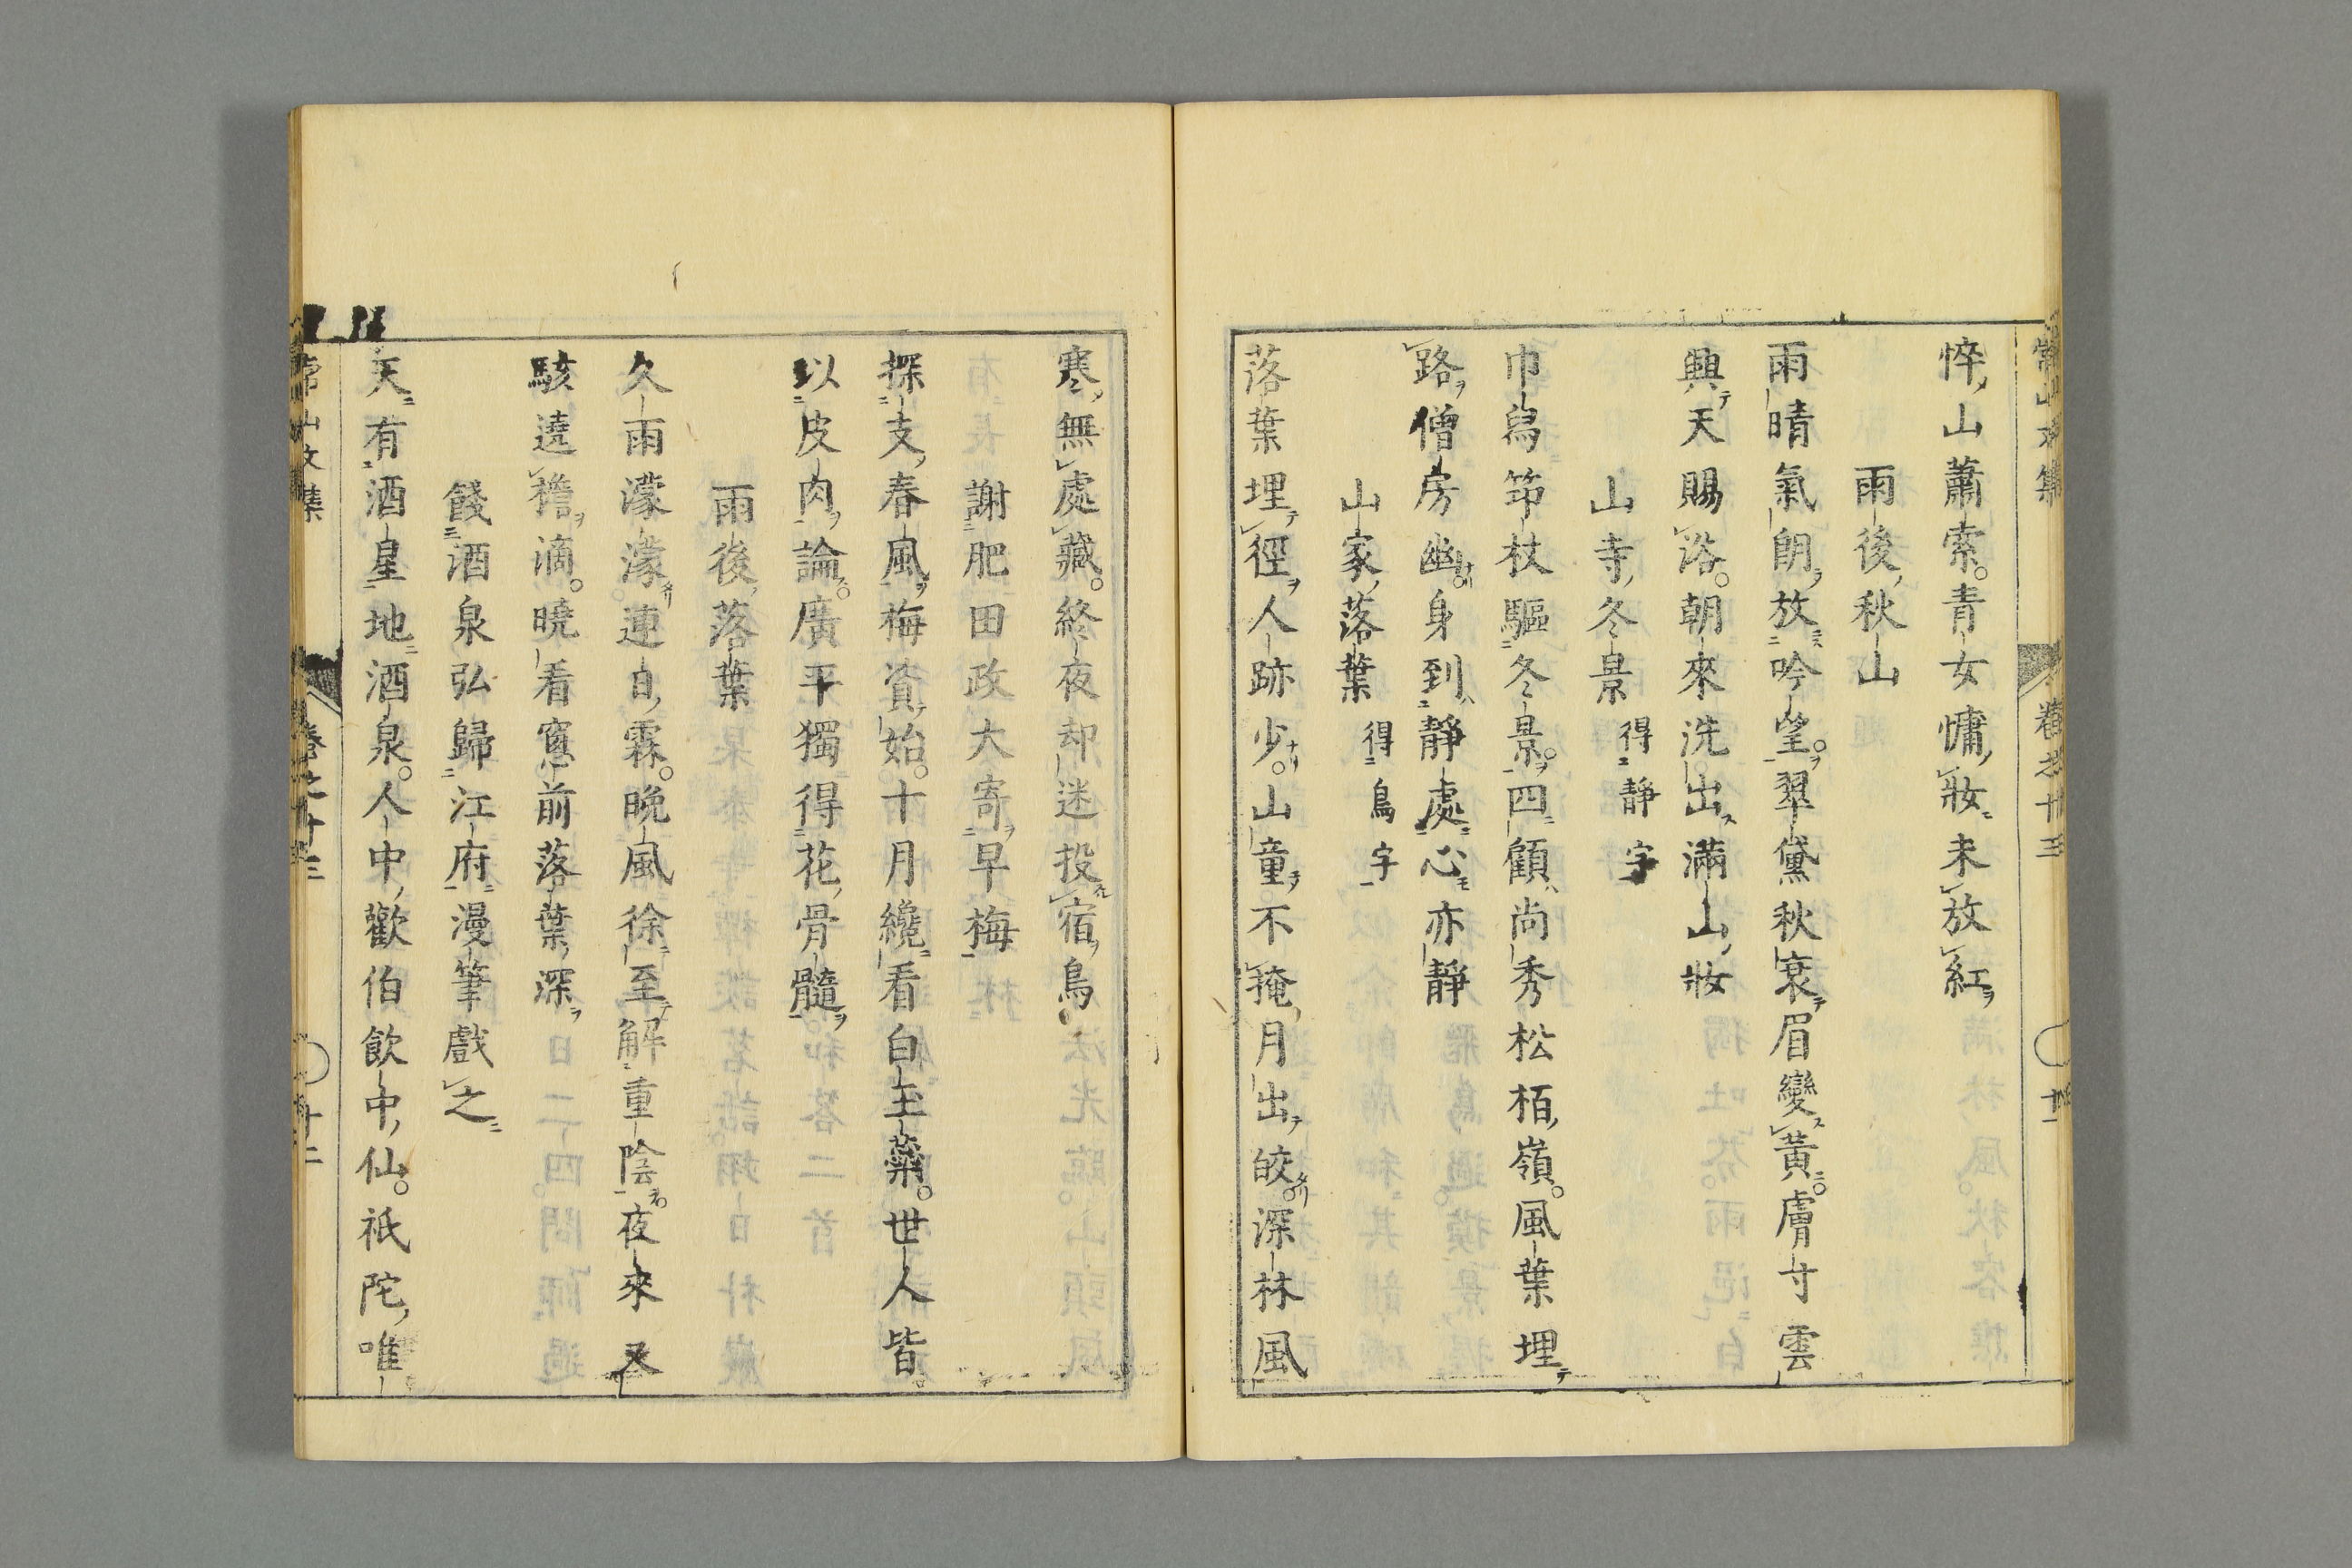 悴山蕭索青女慵妝未放紅
雨後秋山
雨晴氣朗放吟望翠黛秋衰眉變黃膚寸雲
興天賜浴朝來洗出滿山妝
山寺冬景 得靜字
巾烏笻杖驅冬景四顧尚秀松栢嶺風葉埋
路僧房幽身到靜處心亦靜
山家落葉 得鳥字
落葉埋徑人跡少山童不掩月出皎深林風
寒無處藏終夜却迷投宿鳥
謝肥田政大寄早梅
探支春風梅資始十月纔看白玉蘂世人皆
以皮肉論廣平獨得花骨髓
雨後落葉
久雨濛濛連日霖晚風徐至解重陰夜來又
駭遶檐滴曉看窓前落葉深
餞酒泉弘歸江府漫筆戲之
天有酒星地酒泉人中歡伯飲中仙祇陀唯
常山文集 卷之十三 十二